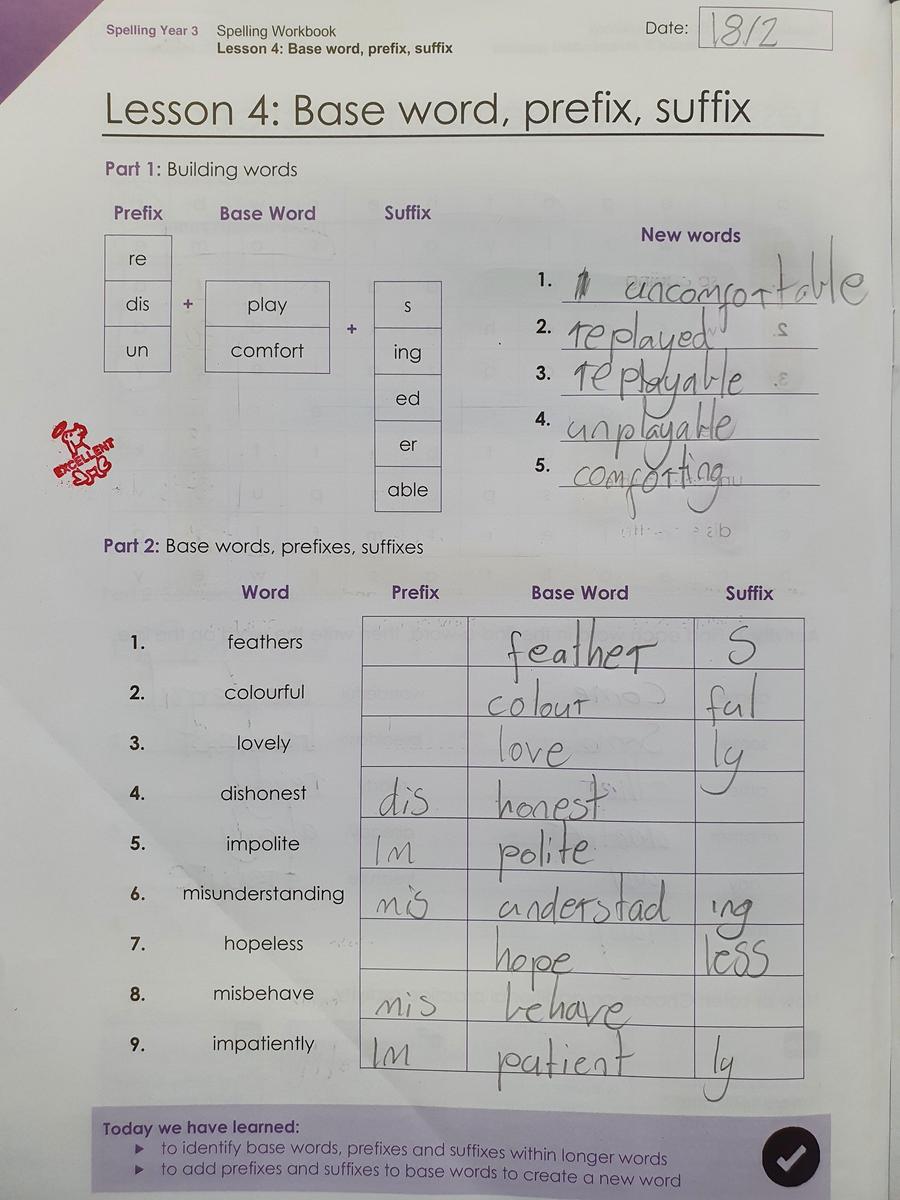 Spelling Year 3 Spelling Workbook Date: 18/2
Lesson 4: Base word, prefix, suffix
Lesson 4: Base word, prefix, suffix
Part 1: Building words
Prefix Base Word Suffix
New words
re
dis + play s
un comfort + ing
ed
er
able
1. uncomfortable
2. replayed
3. replayable
4. unplayable
5. comforting
EXCELLENT
Part 2: Base words, prefixes, suffixes
Word Prefix Base Word Suffix
1. feathers feather S
2. colourful colour ful
3. lovely love ly
4. dishonest dis honest
5. impolite Im polite
6. misunderstanding mis understad ing
7. hopeless hope less
8. misbehave mis behave
9. impatiently Im patient ly
Today we have learned:
to identify base words, prefixes and suffixes within longer words
to add prefixes and suffixes to base words to create a new word